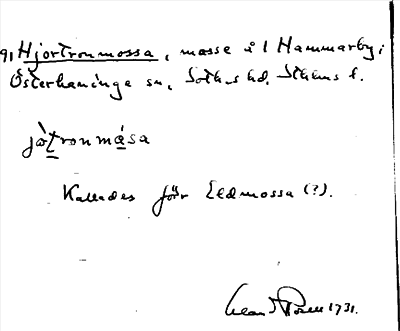 91 Hjortronmossa, mosse å 1 Hammarby i
Österhaninge sn, Soth.s hd. Sthlms l.
jòtronmåsa
Kallades förr Eldmossa (?).
1731.